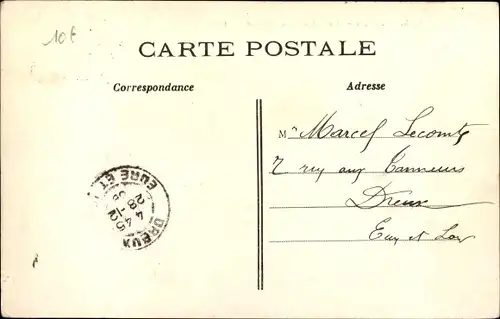 10€
CARTE POSTALE
Correspondance
Adresse
M Marcel Lecomte
7 rue aux Tanneurs
Dreux
Eure et Loir
DREUX
EURE ET